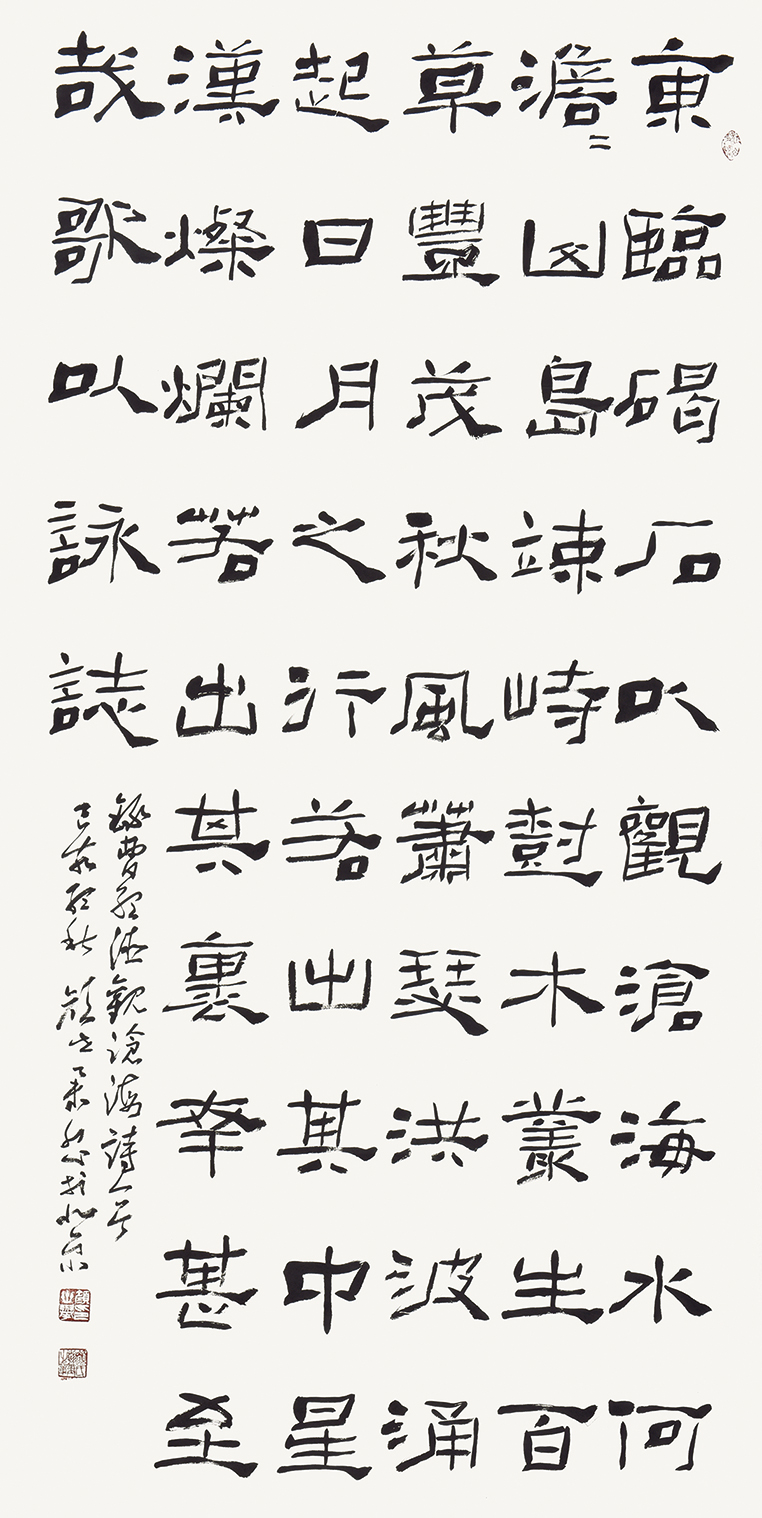 東臨碣石以觀滄海水何
澹二山島竦峙樹木叢生百
草豐茂秋風蕭瑟洪波涌
起日月之行若出其中星
漢燦爛若出其裏幸甚至
哉歌以詠誌
錄曹孟德觀滄海詩一首
己亥孟秋 於北京